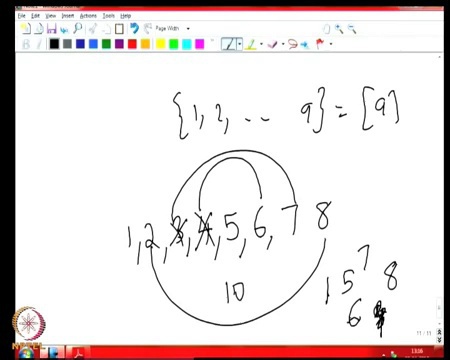 File Edit View Insert Actions Tools Help
Page Width
{1, 2, .. 9} = [9]
1, 2, 3, 4, 5, 6, 7 8
10
7
1 5 8
6
11 / 11
13:05